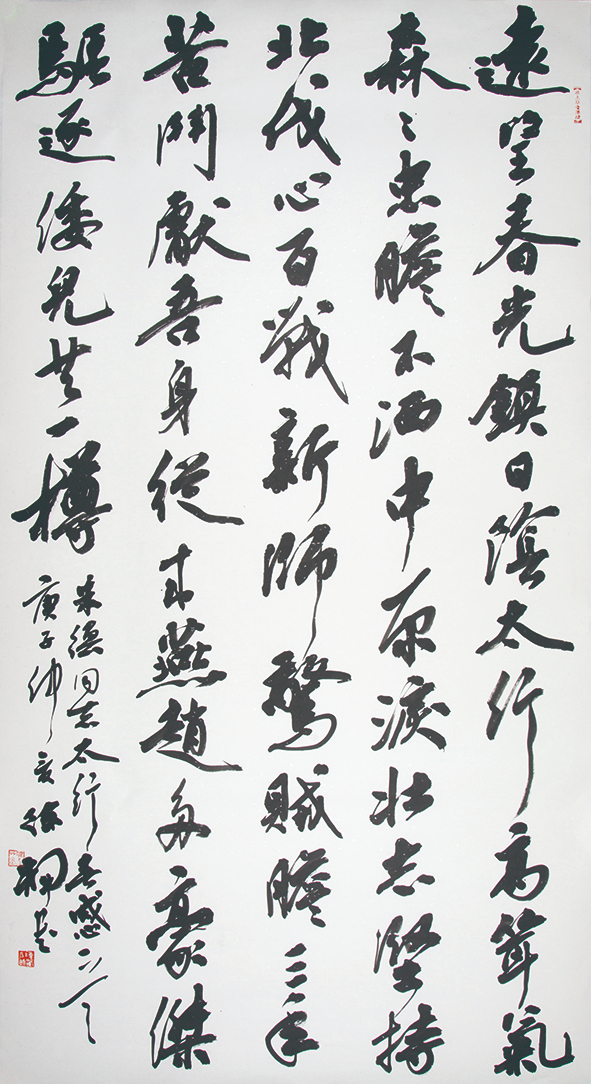 遠望春光鎮日陰太行高聳氣
森〻忠膽不洒中原淚壯志堅持
北伐心百戰新師驚賊膽三年
苦鬥獻吾身從来燕趙多豪傑
驅逐倭兒共一樽
朱德同志太行春感
庚子仲夏徐